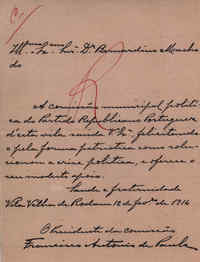 Illmo Exmo Snr Dr Bernardino Macha
do
A comissão municipal politi
ca do Partido Republicano Portuguez
d'esta vila saude V. Exª felicitando
o pela forma patriotica como solu
cionou a crise politica, e oferece o
seu modesto apoio.
Saude e fraternidade
Vila Velha de Rodam 12 de 1914
O Presidente da Comissão
Francisco Antonio de Paula